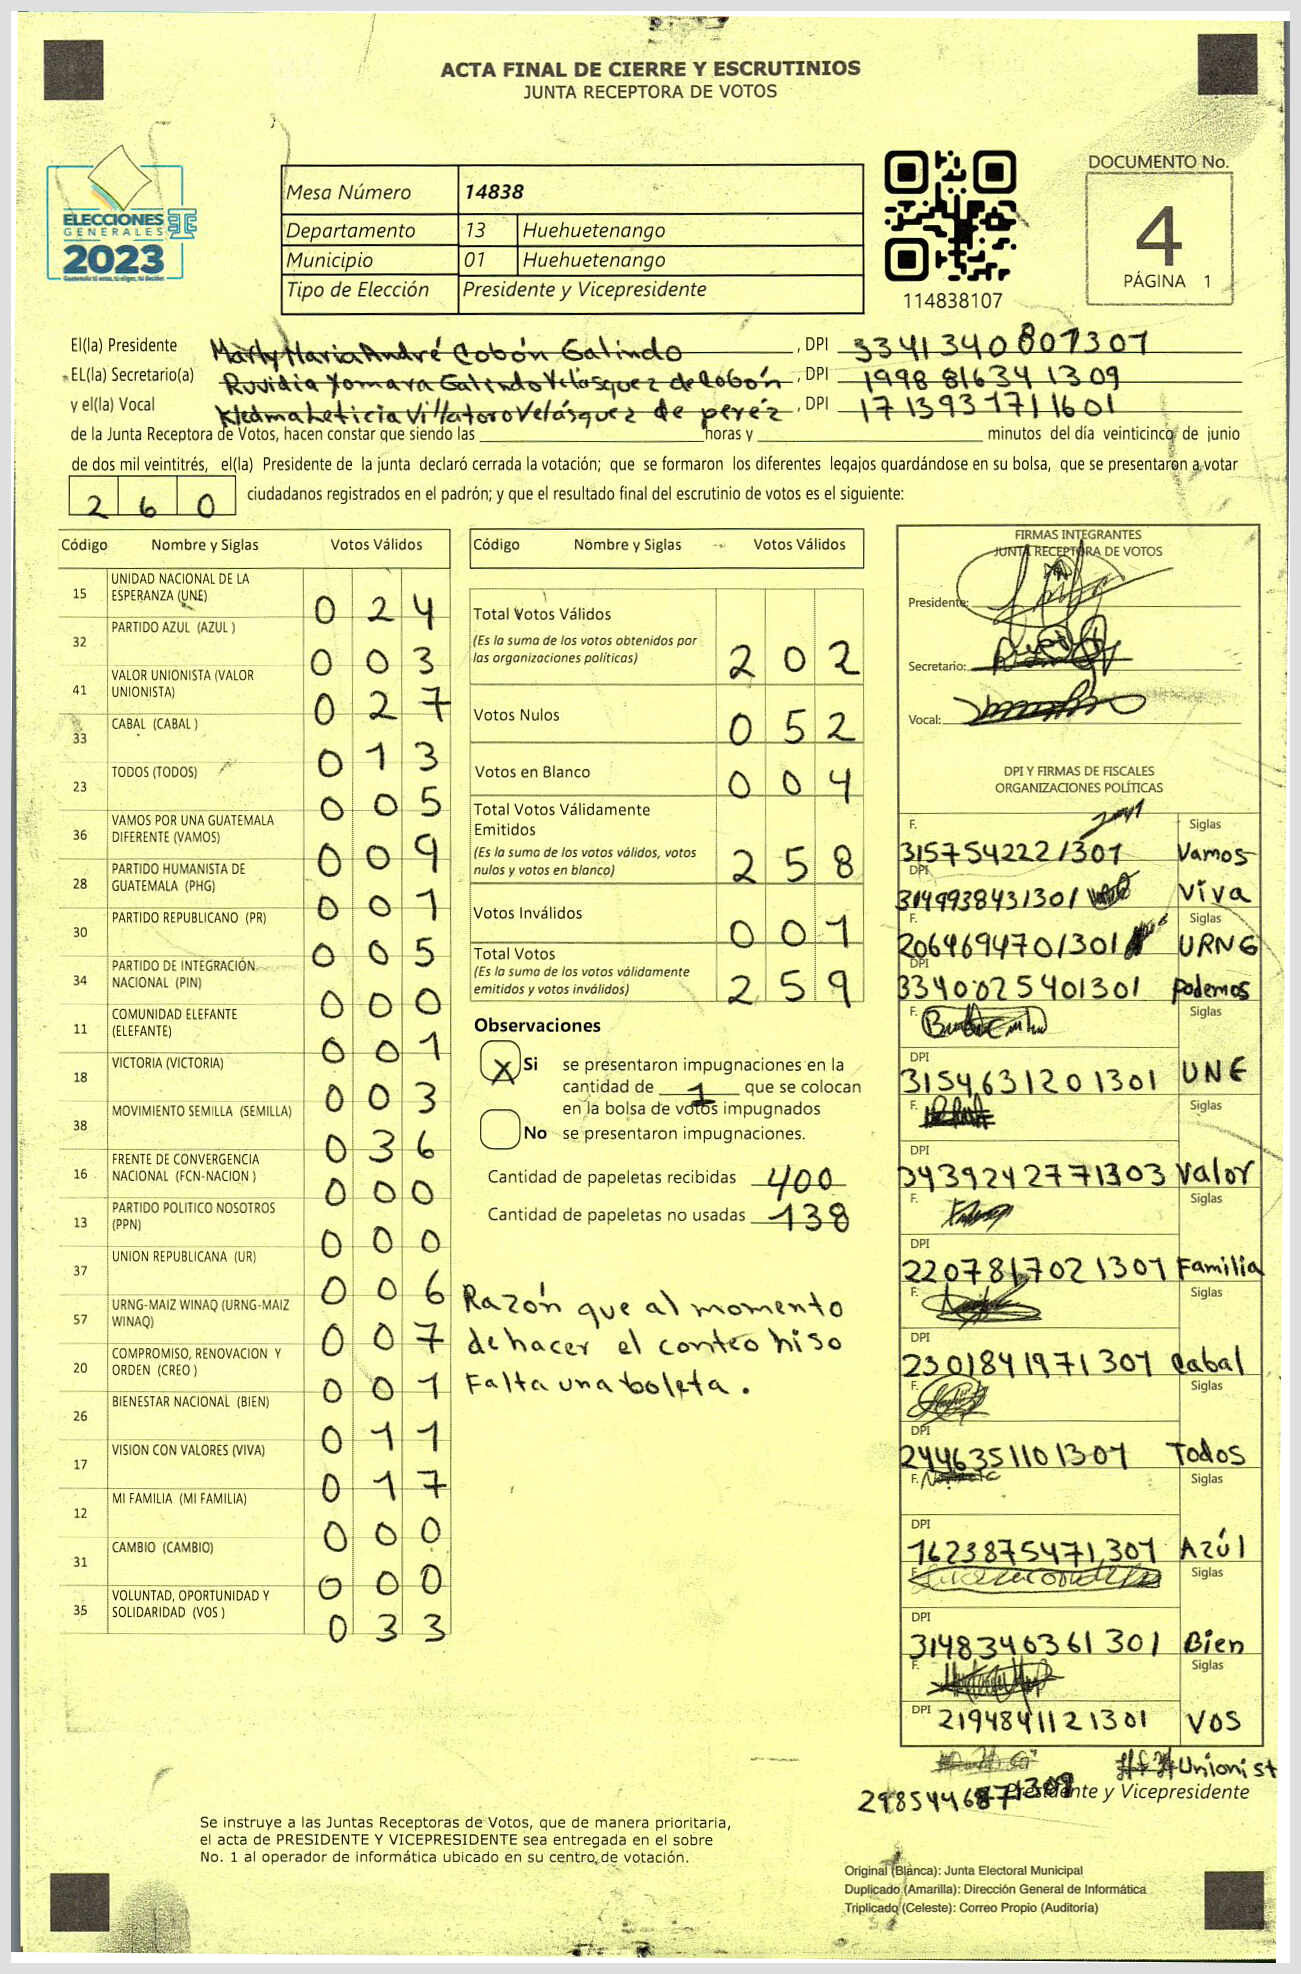 ACTA FINAL DE CIERRE Y ESCRUTINIOS
JUNTA RECEPTORA DE VOTOS
ELECCIONES
GENERALES
2023
Mesa Número 14838
Departamento 13 Huehuetenango
Municipio 01 Huehuetenango
Tipo de Elección Presidente y Vicepresidente
114838107
DOCUMENTO No.
4
PÁGINA 1
El(la) Presidente Marly Maria André Cobón Galindo , DPI 3341340801301
EL(la) Secretario(a) Ruvidia Yomara Galindo Velásquez de Cobón , DPI 1998816341309
y el(la) Vocal Kledma Leticia Villatoro Velásquez de peréz , DPI 1713931711601
de la Junta Receptora de Votos, hacen constar que siendo las horas y minutos del día veinticinco de junio
de dos mil veintitrés, el(la) Presidente de la junta declaró cerrada la votación; que se formaron los diferentes legajos guardándose en su bolsa, que se presentaron a votar
260 ciudadanos registrados en el padrón; y que el resultado final del escrutinio de votos es el siguiente:
Código Nombre y Siglas Votos Válidos
15 UNIDAD NACIONAL DE LA ESPERANZA (UNE) 024
32 PARTIDO AZUL (AZUL ) 003
41 VALOR UNIONISTA (VALOR UNIONISTA) 027
33 CABAL (CABAL ) 013
23 TODOS (TODOS) 005
36 VAMOS POR UNA GUATEMALA DIFERENTE (VAMOS) 009
28 PARTIDO HUMANISTA DE GUATEMALA (PHG) 001
30 PARTIDO REPUBLICANO (PR) 005
34 PARTIDO DE INTEGRACIÓN NACIONAL (PIN) 000
11 COMUNIDAD ELEFANTE (ELEFANTE) 001
18 VICTORIA (VICTORIA) 003
38 MOVIMIENTO SEMILLA (SEMILLA) 036
16 FRENTE DE CONVERGENCIA NACIONAL (FCN-NACION ) 000
13 PARTIDO POLITICO NOSOTROS (PPN) 000
37 UNION REPUBLICANA (UR) 006
57 URNG-MAIZ WINAQ (URNG-MAIZ WINAQ) 007
20 COMPROMISO, RENOVACION Y ORDEN (CREO ) 001
26 BIENESTAR NACIONAL (BIEN) 011
17 VISION CON VALORES (VIVA) 017
12 MI FAMILIA (MI FAMILIA) 000
31 CAMBIO (CAMBIO) 000
35 VOLUNTAD, OPORTUNIDAD Y SOLIDARIDAD (VOS ) 033
Código Nombre y Siglas Votos Válidos
Total Votos Válidos
(Es la suma de los votos obtenidos por
las organizaciones políticas) 202
Votos Nulos 052
Votos en Blanco 004
Total Votos Válidamente
Emitidos
(Es la suma de los votos válidos, votos
nulos y votos en blanco) 258
Votos Inválidos 001
Total Votos
(Es la suma de los votos válidamente
emitidos y votos inválidos) 259
Observaciones
X Si se presentaron impugnaciones en la
cantidad de 1 que se colocan
en la bolsa de votos impugnados
No se presentaron impugnaciones.
Cantidad de papeletas recibidas 400
Cantidad de papeletas no usadas 138
Razón que al momento
de hacer el conteo hiso
Falta una boleta.
FIRMAS INTEGRANTES
JUNTA RECEPTORA DE VOTOS
Presidente:
Secretario:
Vocal:
DPI Y FIRMAS DE FISCALES
ORGANIZACIONES POLÍTICAS
F. Siglas
3157542221301 Vamos
DPI
3149938431301 Viva
F. Siglas
2064694701301 URNG
DPI
3340025401301 Podemos
F. Siglas
DPI
3154631201301 UNE
F. Siglas
DPI
3439242771303 Valor
F. Siglas
DPI
2207817021301 Familia
F. Siglas
DPI
2301841971301 Cabal
F. Siglas
DPI
2446351101301 Todos
F. Siglas
DPI
1623875471301 Azúl
F. Siglas
DPI
3148346361301 Bien
F. Siglas
DPI 2194841121301 VOS
Unionist
Presidente y Vicepresidente
Se instruye a las Juntas Receptoras de Votos, que de manera prioritaria,
el acta de PRESIDENTE Y VICEPRESIDENTE sea entregada en el sobre
No. 1 al operador de informática ubicado en su centro de votación.
Original (Blanca): Junta Electoral Municipal
Duplicado (Amarilla): Dirección General de Informática
Triplicado (Celeste): Correo Propio (Auditoría)